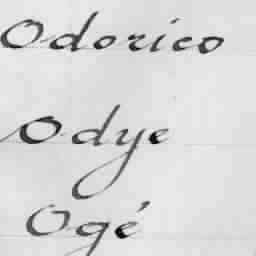 Odorico
Odye
Ogé